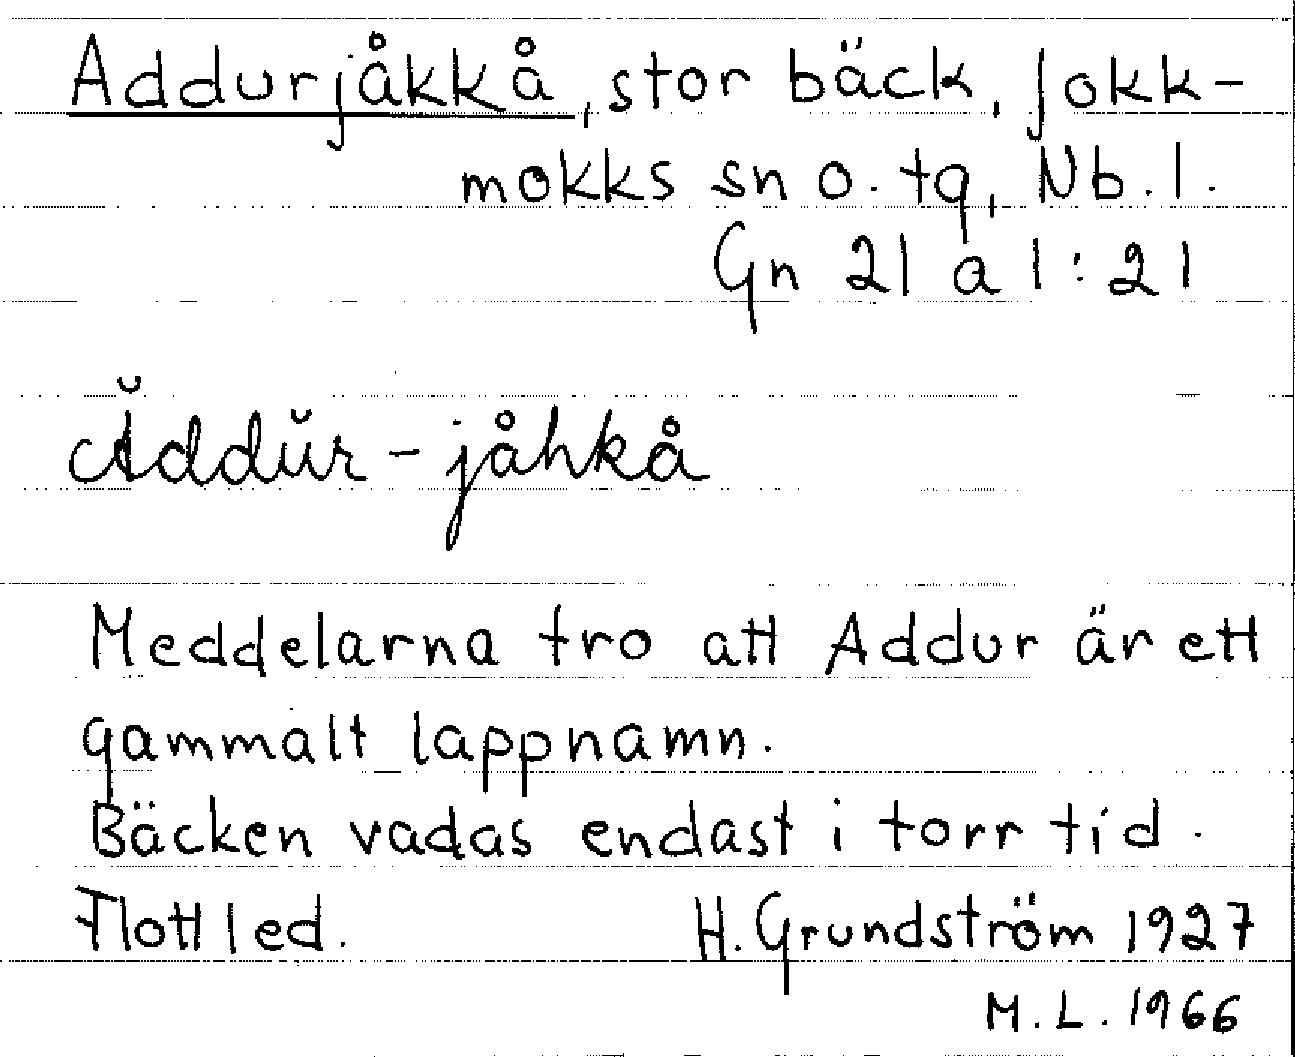 Addurjåkkå, stor bäck, Jokk-
mokks sn o. tg, Nb. l.
Gn 21 a 1:21
Ăddŭr-jåhkå
Meddelarna tro att Addur är ett
gammalt lappnamn.
Bäcken vadas endast i torr tid.
Flottled. H. Grundström 1927
M. L. 1966